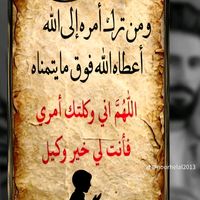 ومن ترك أمره إلى الله
أعطاه الله فوق ما يتمناه
اللهم اني وكلتك أمري
فأنت لي خير وكيل